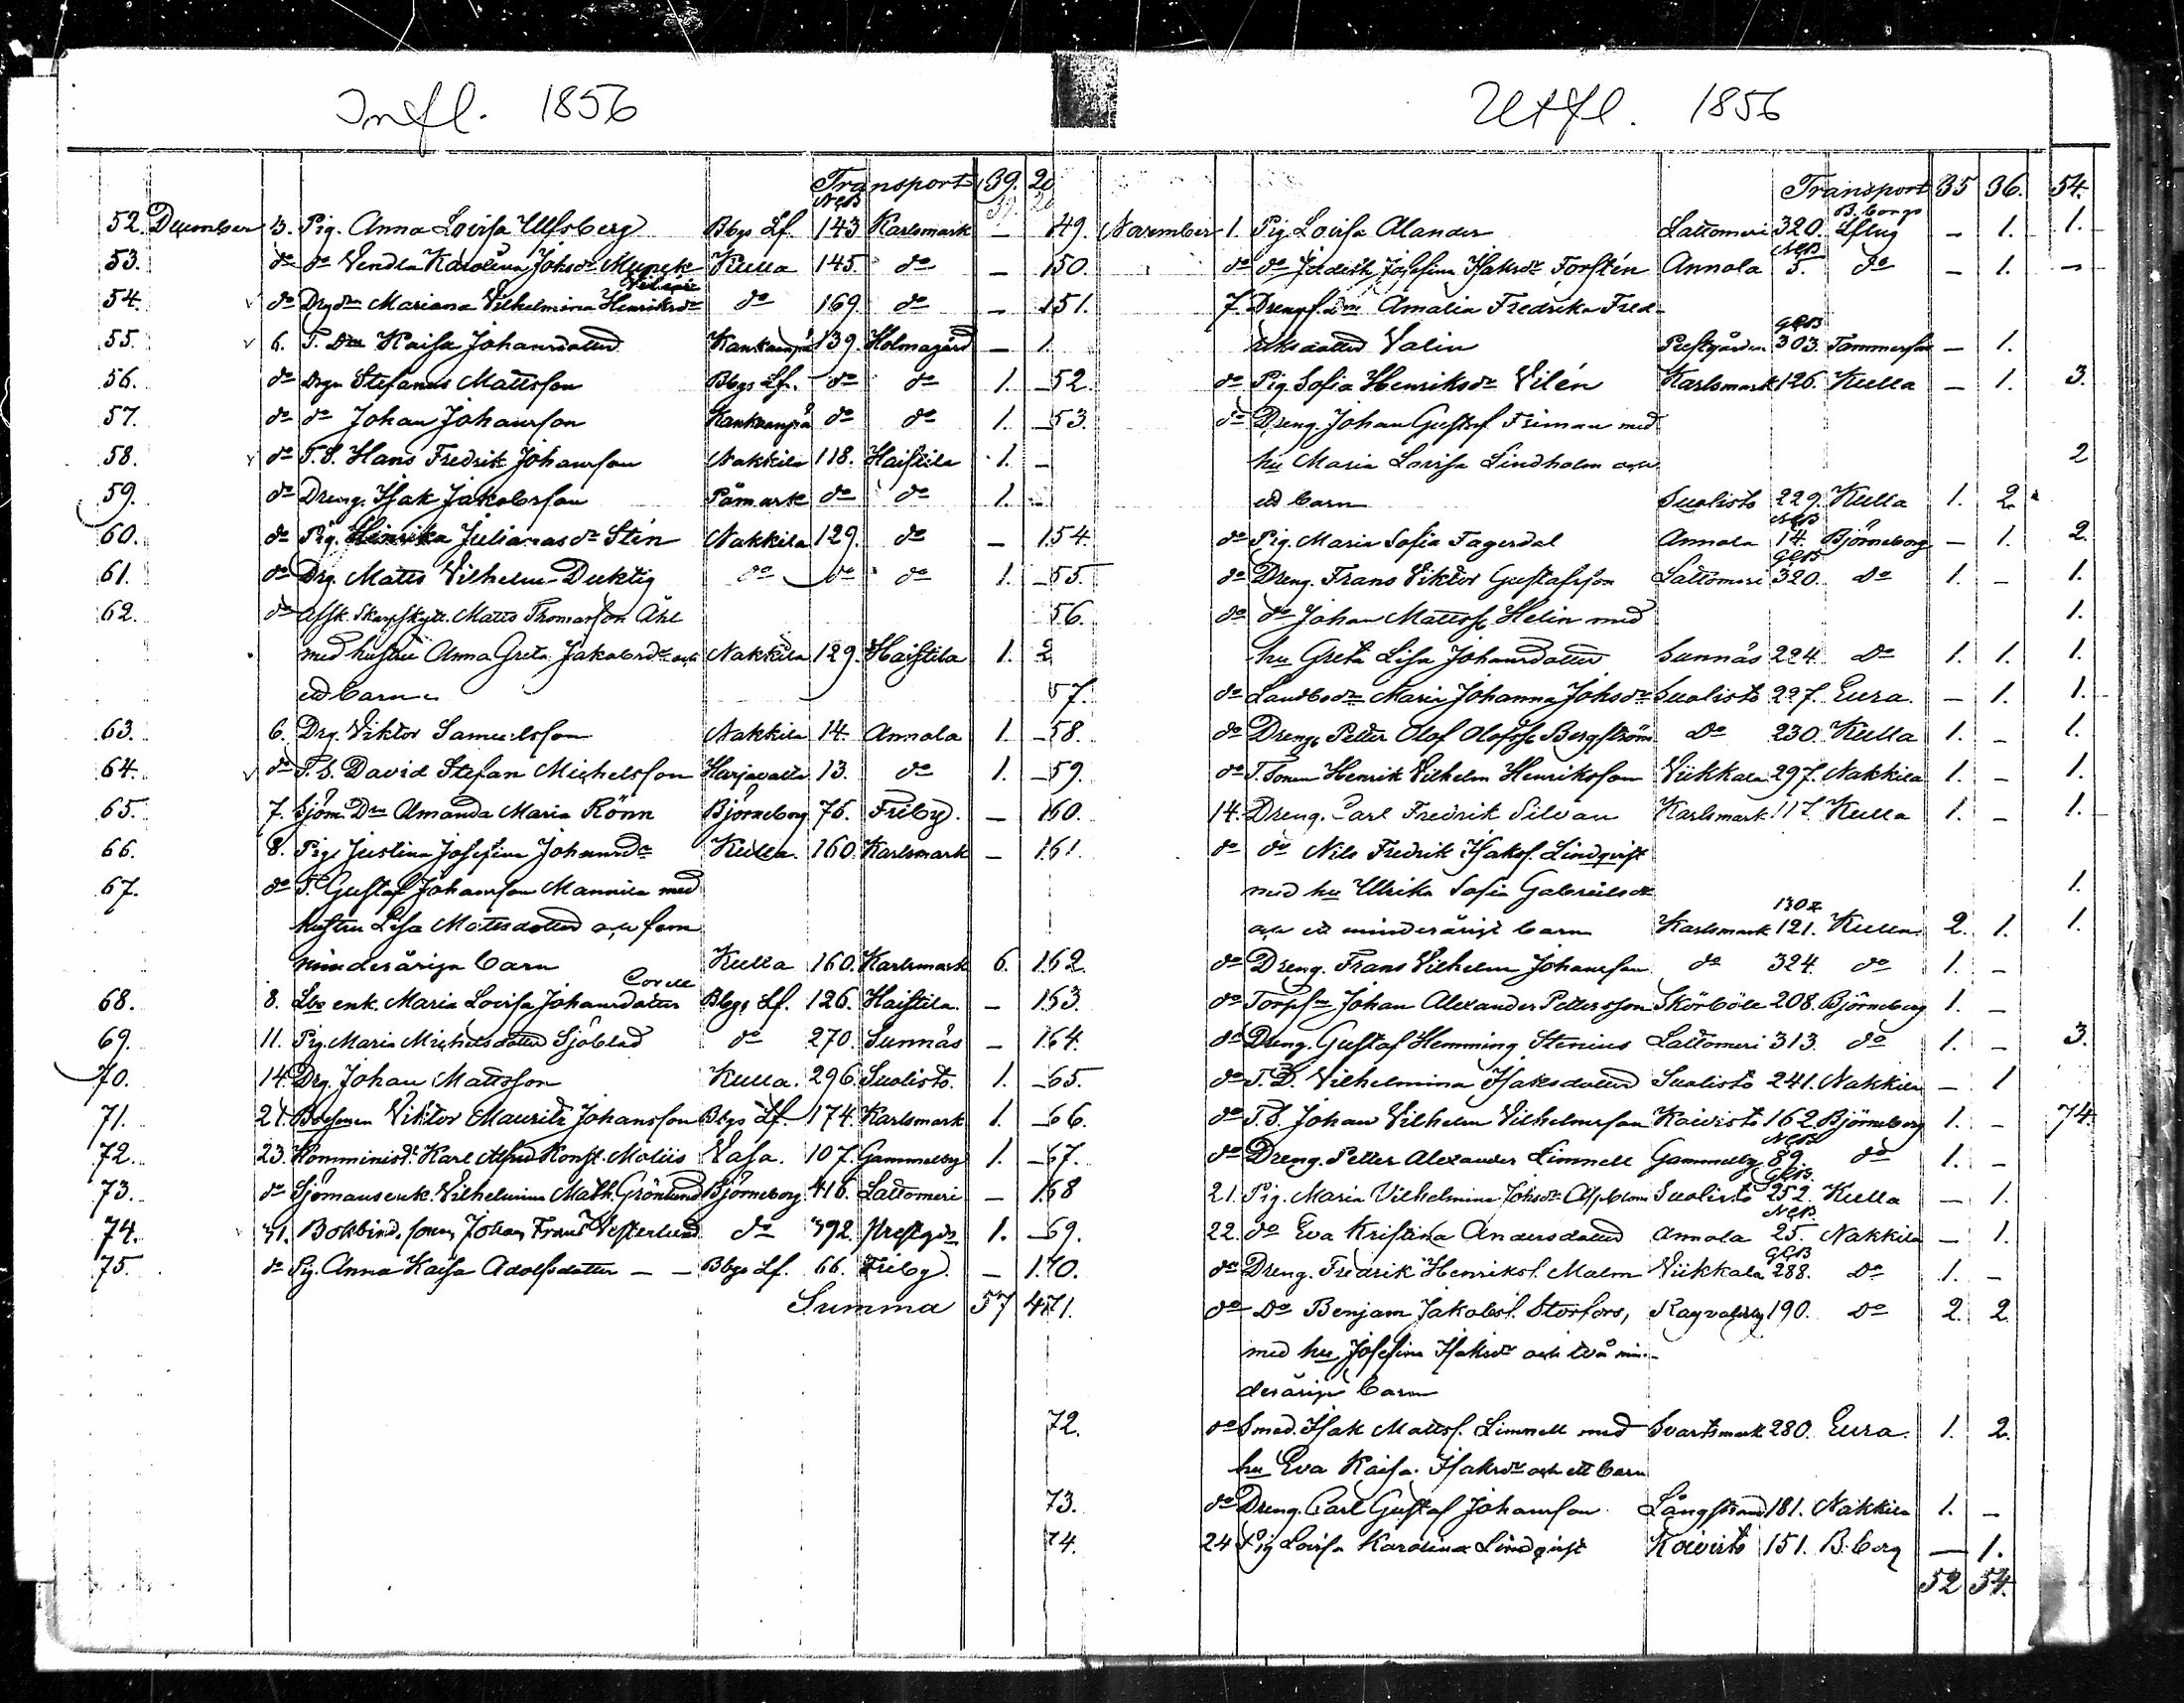 Infl. 1856
Transport 39. 20
NGB 39. 20
52. December 3. Pig. Anna Lovisa Ulfsberg Bbgs Lf. 143 Karlsmark — 1
53. do do Vendla Karolina Johsdr Munck Kulla 145. do — 1
54. do Drgdr Mariana Vilhelmina Henriksdr do 169. do — 1
55. 6. T. Dr Kaisa Johansdotter Kankaanpä 139. Holmagård — 1.
56. do Drgn Stefanus Mattsson Bbgs Lf. do do 1. —
57. do do Johan Johansson Kankaanpä do do 1. —
58. do T.S. Hans Fredrik Johansson Nakkila 118. Haistila 1. —
59. do Dreng. Isak Jakobsson Påmark do do 1. —
60. do Pig. Henrika Julianasdr Stén Nakkila 129. do — 1
61. do Drg. Matts Vilhelm Duktig do do do 1. —
62. do Afsk. Skarpskytt. Matts Thomasson Åhl
med hustru Anna Greta Jakobsdr och Nakkila 129. Haistila 1. 2
ett barn
63. 6. Drg. Viktor Samuelsson Nakkila 14. Annola 1. —
64. do T.S. David Stefan Michelsson Harjavalta 13. do 1. —
65. 7. Sjöm. Dr Amanda Maria Rönn Björneborg 76. Friby. — 1
66. 8. Pig. Justina Josefina Johansdr Kulla. 160. Karlsmark — 1
67. do T. Gustaf Johansson Mannila med
hustru Lisa Mattsdotter och fem
minderåriga barn Kulla 160. Karlsmark 6. 1
68. 8. Lbo enk. Maria Lovisa Johansdotter Bbgs Lf. 126. Haistila. — 1
69. 11. Pig. Maria Michelsdotter Sjöblad do 270. Sunnäs — 1
70. 14. Drg. Johan Mattsson Kulla. 296. Suolisto. 1. —
71. 21. Viktor Mauritz Johansson Bbgs Lf. 174. Karlsmark 1. —
72. 23. Komminist. Karl Alfred Konst. Malin Vasa. 107. Gammelby 1. —
73. do Sjömansenk. Vilhelmina Math. Grönlund Björneborg 416. Lattomeri — 1
74. 31. Bokbind. son Johan Frans Vesterlund do 392. Prestgrd 1. —
75. do Pig. Anna Kaisa Adolfsdotter — — Bbgs Lf. 66. Friby. — 1.
Summa 57 47
Utfl. 1856
Transport 35 36. 54.
49. November 1. Pig. Lovisa Alander Lattomeri 320. B. borgs Lflng — 1. 1.
50. do do Judith Josefina Isaksdr Forstén Annola NGB 5. do — 1. —
51. 7. Drengs. Amalia Fredrika Fred-
riksdotter Valin Prestgården GGB 303. Tammerfors — 1.
52. do Pig. Sofia Henriksdr Vilén Karlsmark 126. Kulla — 1. 3.
53. do Dreng. Johan Gustaf Friman med
hu Maria Lovisa Lindholm och 2
ett barn Suolisto 229. Kulla 1. 2.
54. do Pig. Maria Sofia Fagerdal Annola NGB 14. Björneborg — 1. 2.
55. do Dreng. Frans Viktor Gustafsson Lattomeri GGB 320. do 1. — 1.
56. do do Johan Mattss. Helin med 1.
hu Greta Lisa Johansdotter Sunnäs 224. do 1. 1. 1.
57. do Landbodr Maria Johanna Johsdr Suolisto 227. Eura. — 1. 1.
58. do Dreng. Petter Olof Olofss. Bergström do 230. Kulla 1. — 1.
59. do T. Sonen Henrik Vilhelm Henriksson Viikkala 297. Nakkila 1. — 1.
60. 14. Dreng. Carl Fredrik Silvan Karlsmark 117. Kulla 1. — 1.
61. do do Nils Fredrik Isaks. Lindqvist
med hu Ulrika Sofia Gabrielsdr 1.
och ett minderårigt barn Karlsmark 130 121. Kulla 2. 1. 1.
62. do Dreng. Frans Vilhelm Johansson do 324. do 1. —
63. do Torpsn Johan Alexander Pettersson Skörböle 208. Björneborg 1. —
64. do Dreng. Gustaf Hemming Stenius Lattomeri 313. do 1. — 3.
65. do T.D. Vilhelmina Isaksdotter Suolisto 241. Nakkila — 1
66. do T.S. Johan Vilhelm Vilhelmsson Koivisto 162. Björneborg 1. — 74.
67. do Dreng. Petter Alexander Limnell Gammelby NGB 89. do 1. —
68 21. Pig. Maria Vilhelmina Johsdr Asplund Suolisto GGB. 252. Kulla — 1.
69. 22. do Eva Kristina Andersdotter Annola NGB. 25. Nakkila — 1.
70. do Dreng. Fredrik Henriks. Malm Viikkala GGB 288. do 1. —
71. do do Benjam Jakobs. Storfors, Ragvaldsby 190. do 2. 2.
med hu Josefina Isaksdr och två min-
deråriga barn
72. do Smed. Isak Mattss. Limnell med Svartsmark 280. Eura. 1. 2.
hu Eva Kaisa Isaksdr och ett barn
73. do Dreng. Carl Gustaf Johansson Långstrand 181. Nakkila 1. —
74. 24 Pig Lovisa Karolina Lindqvist Koivisto 151. B. borg — 1.
52 54.